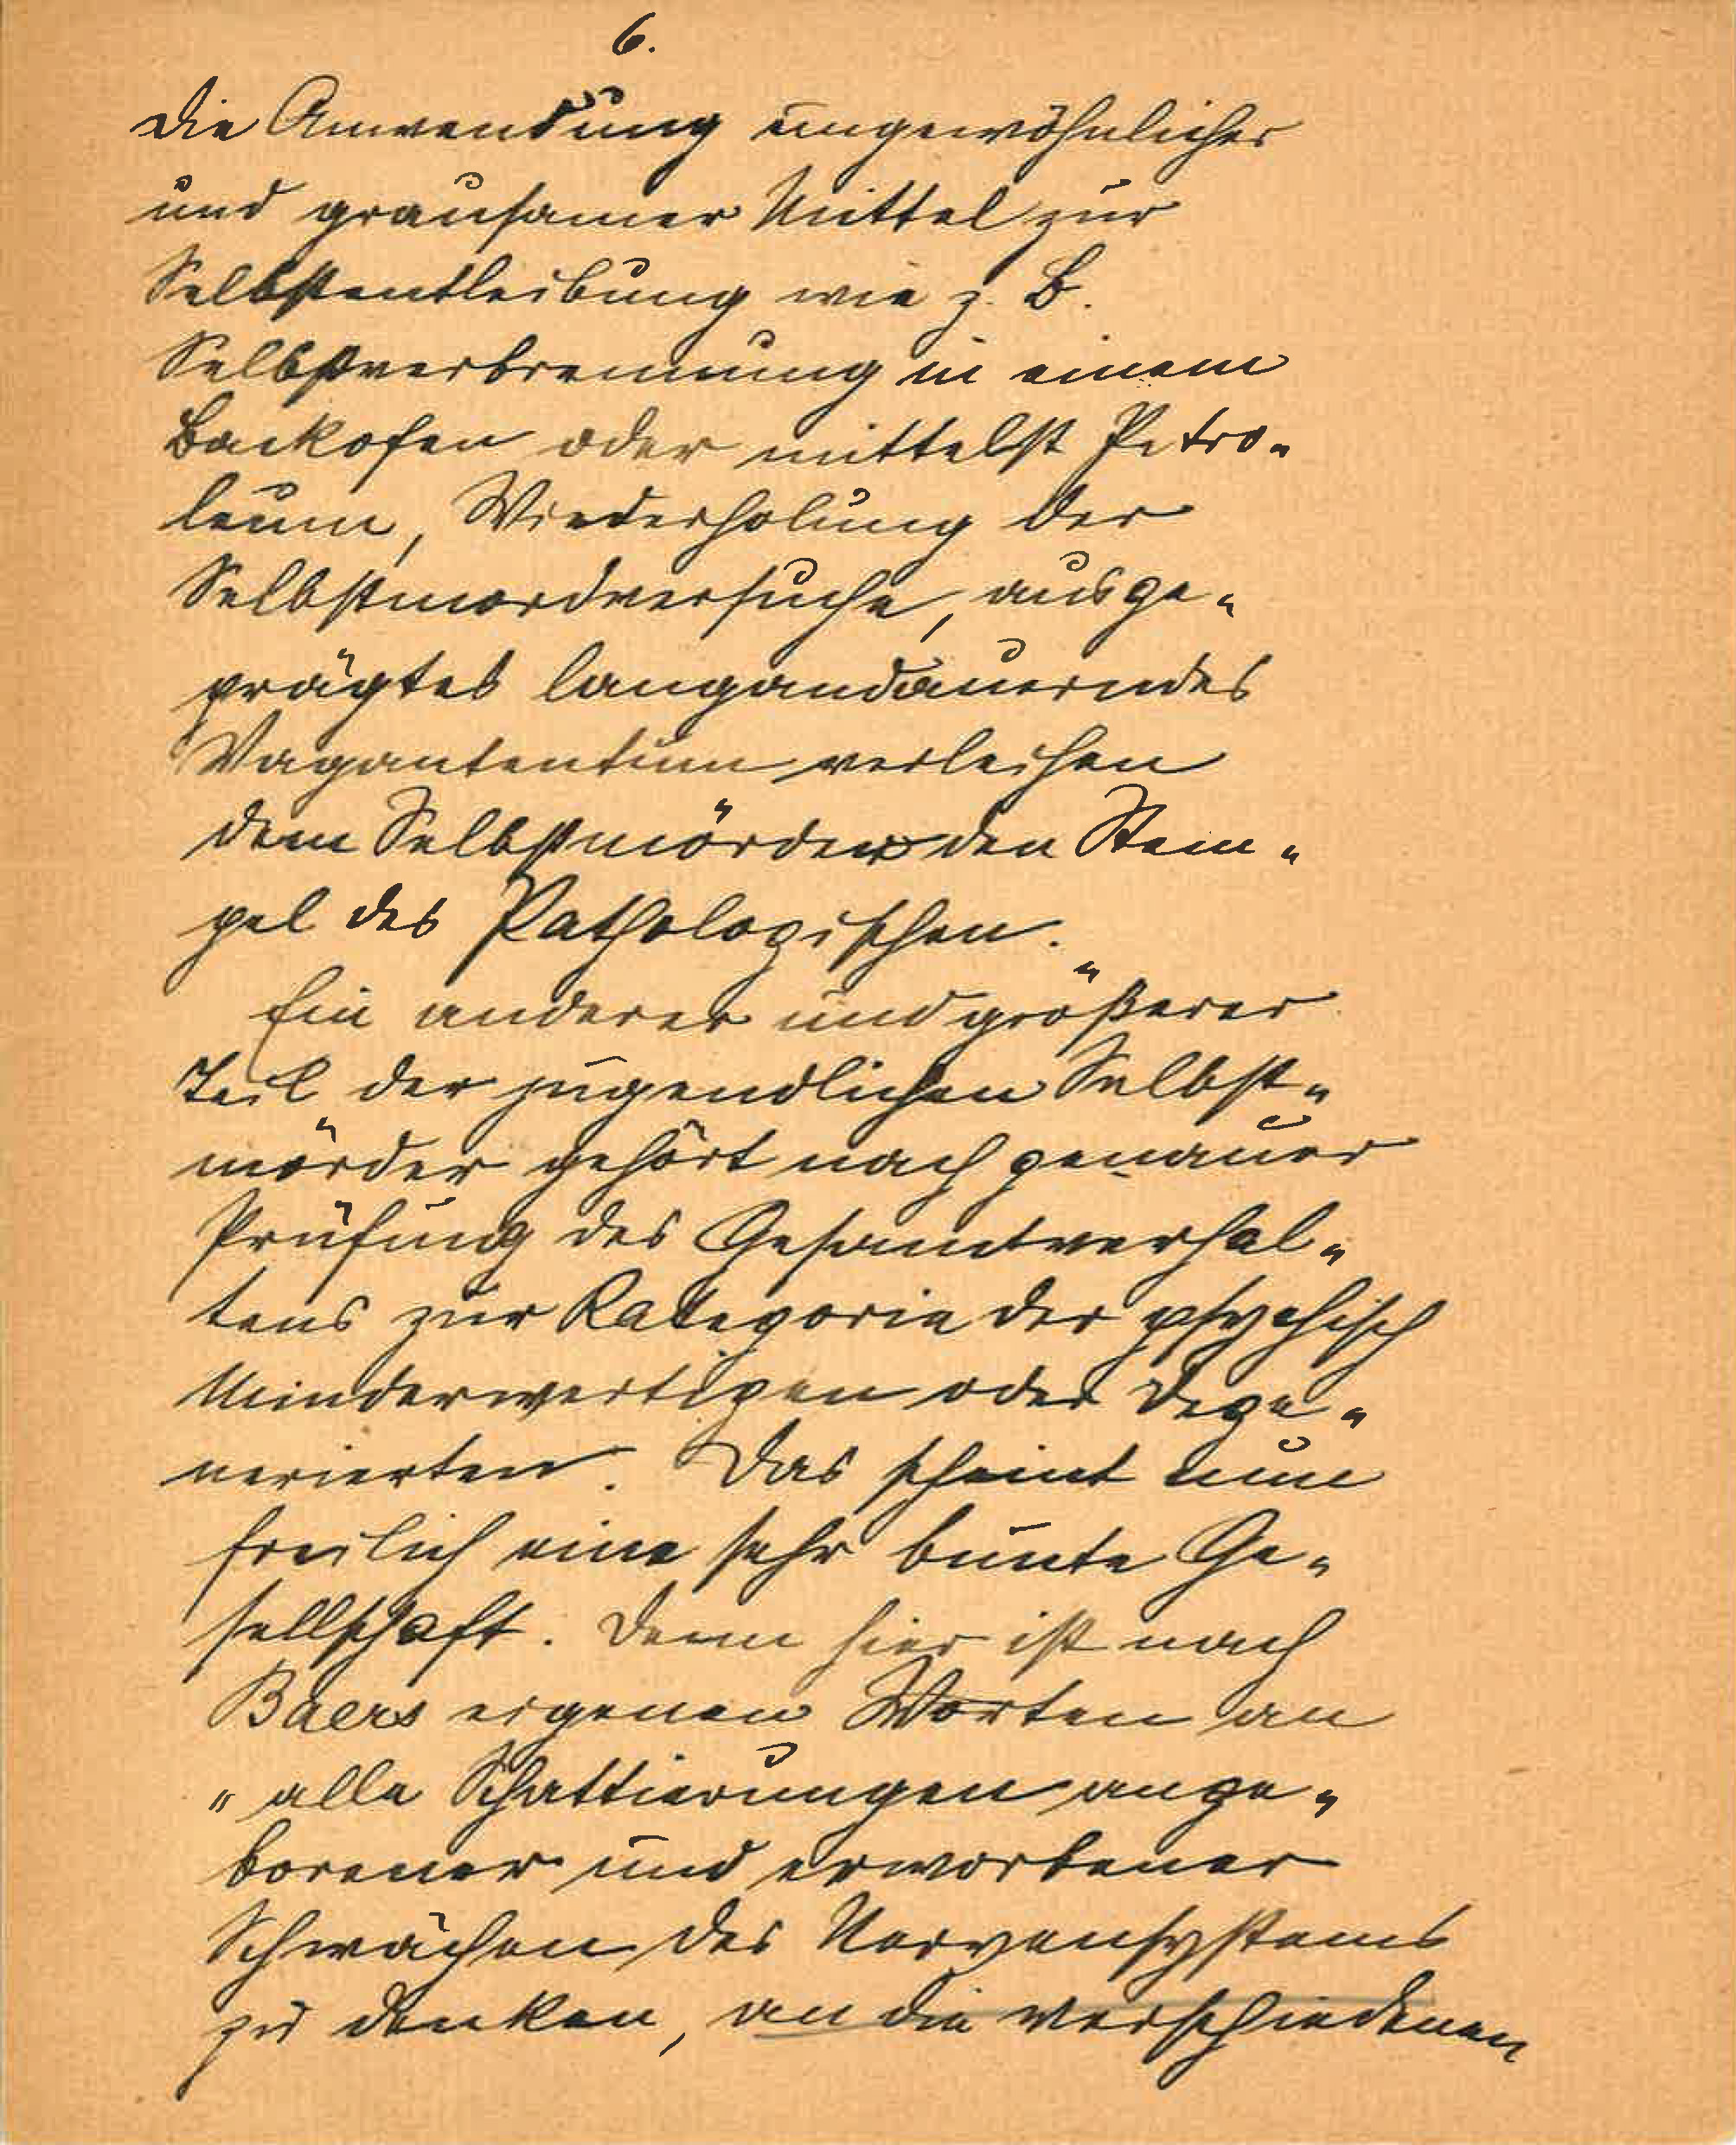 6.
die Anwendung ungewöhnlicher
und grausamer Mittel zur
Selbstentleibung wie z. B.
Selbstverbrennung in einem
Backofen oder mittelst Petro„
leum, Wiederholung der
Selbstmordversuche, ausge„
prägtes langandauerndes
Vagantentum verleihen
dem Selbstmörder den Stem„
pel des Pathologischen.
Ein anderer und größerer
Teil der jugendlichen Selbst„
mörder gehört nach genauer
Prüfung des Gesamtverhal„
tens zur Kategorie der psychisch
Minderwertigen oder Dege„
nerierten. Das scheint nun
freilich eine sehr bunte Ge„
sellschaft. Denn hier ist nach
Baers eigenen Worten an
„alle Schattierungen ange„
borener und erworbener
Schwächen des Nervensystems
zu denken, an die verschiedenen